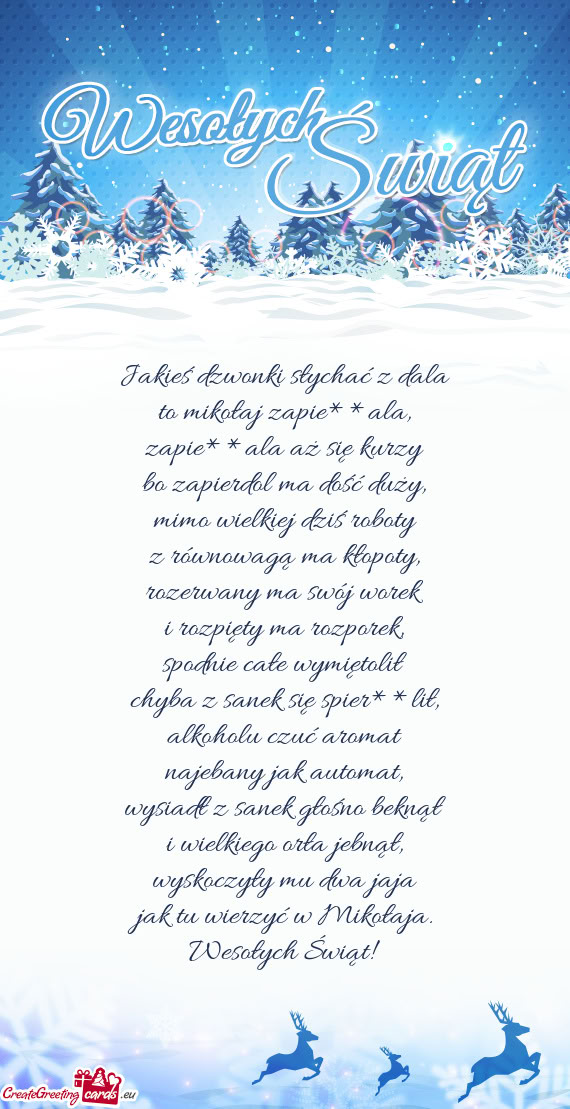 Wesołych
Świąt
Jakieś dzwonki słychać z dala
to mikołaj zapie* * ala,
zapie* * ala aż się kurzy
bo zapierdol ma dość duży,
mimo wielkiej dziś roboty
z równowagą ma kłopoty,
rozerwany ma swój worek
i rozpięty ma rozporek,
spodnie całe wymiętolił
chyba z sanek się spier* * lił,
alkoholu czuć aromat
najebany jak automat,
wysiadł z sanek głośno beknął
i wielkiego orła jebnął,
wyskoczyły mu dwa jaja
jak tu wierzyć w Mikołaja.
Wesołych Świąt!
CreateGreeting cards .eu